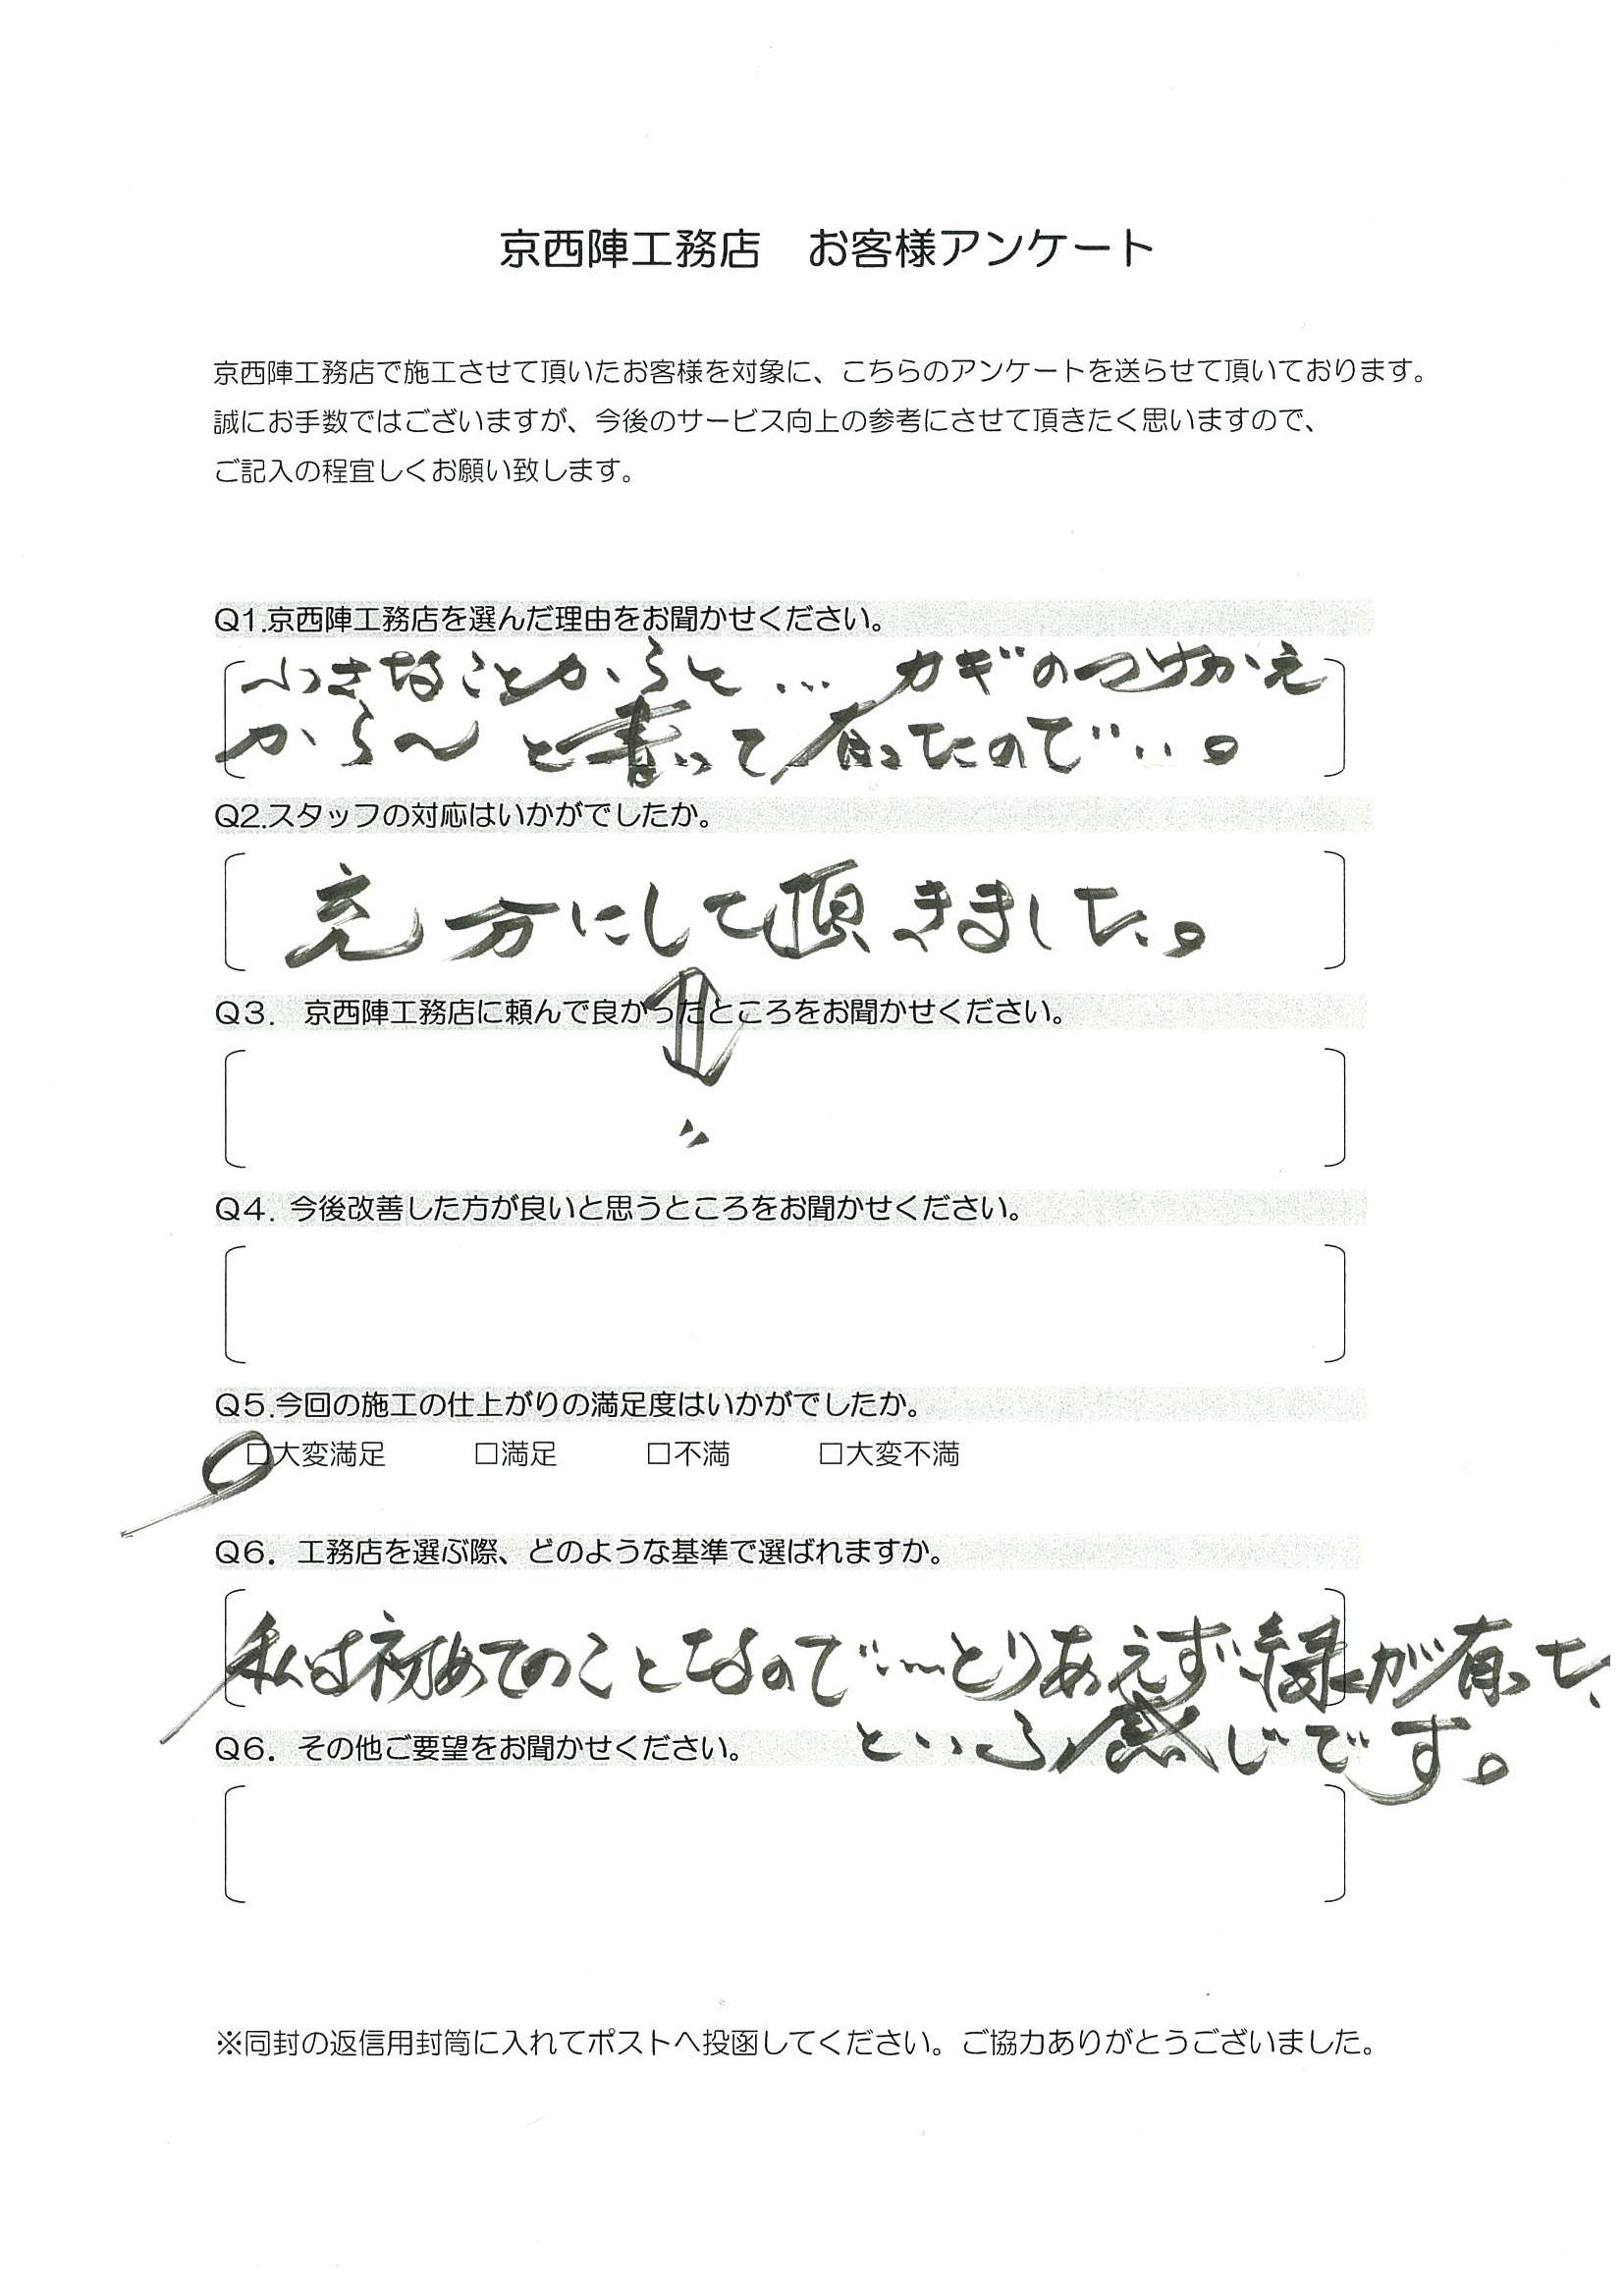 京西陣工務店　お客様アンケート
京西陣工務店で施工させて頂いたお客様を対象に、こちらのアンケートを送らせて頂いております。
誠にお手数ではございますが、今後のサービス向上の参考にさせて頂きたく思いますので、
ご記入の程宜しくお願い致します。
Q1.京西陣工務店を選んだ理由をお聞かせください。
小さなことからと… カギのつけかえ
から〜 と書いて有ったので…。
Q2.スタッフの対応はいかがでしたか。
充分にして頂きました。
Q3. 京西陣工務店に頼んで良かったところをお聞かせください。
〃
Q4. 今後改善した方が良いと思うところをお聞かせください。
Q5.今回の施工の仕上がりの満足度はいかがでしたか。
□大変満足 □満足 □不満 □大変不満
Q6. 工務店を選ぶ際、どのような基準で選ばれますか。
私は初めてのことなので……とりあえず縁が有った
という感じです。
Q6. その他ご要望をお聞かせください。
※同封の返信用封筒に入れてポストへ投函してください。ご協力ありがとうございました。